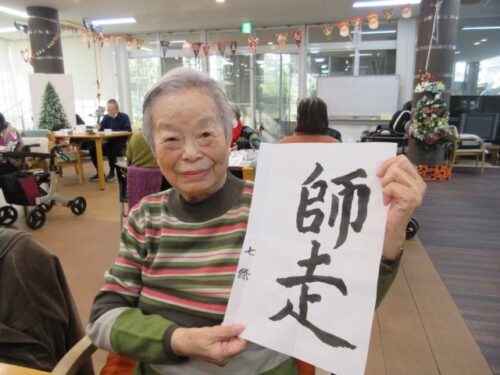 師走
七條